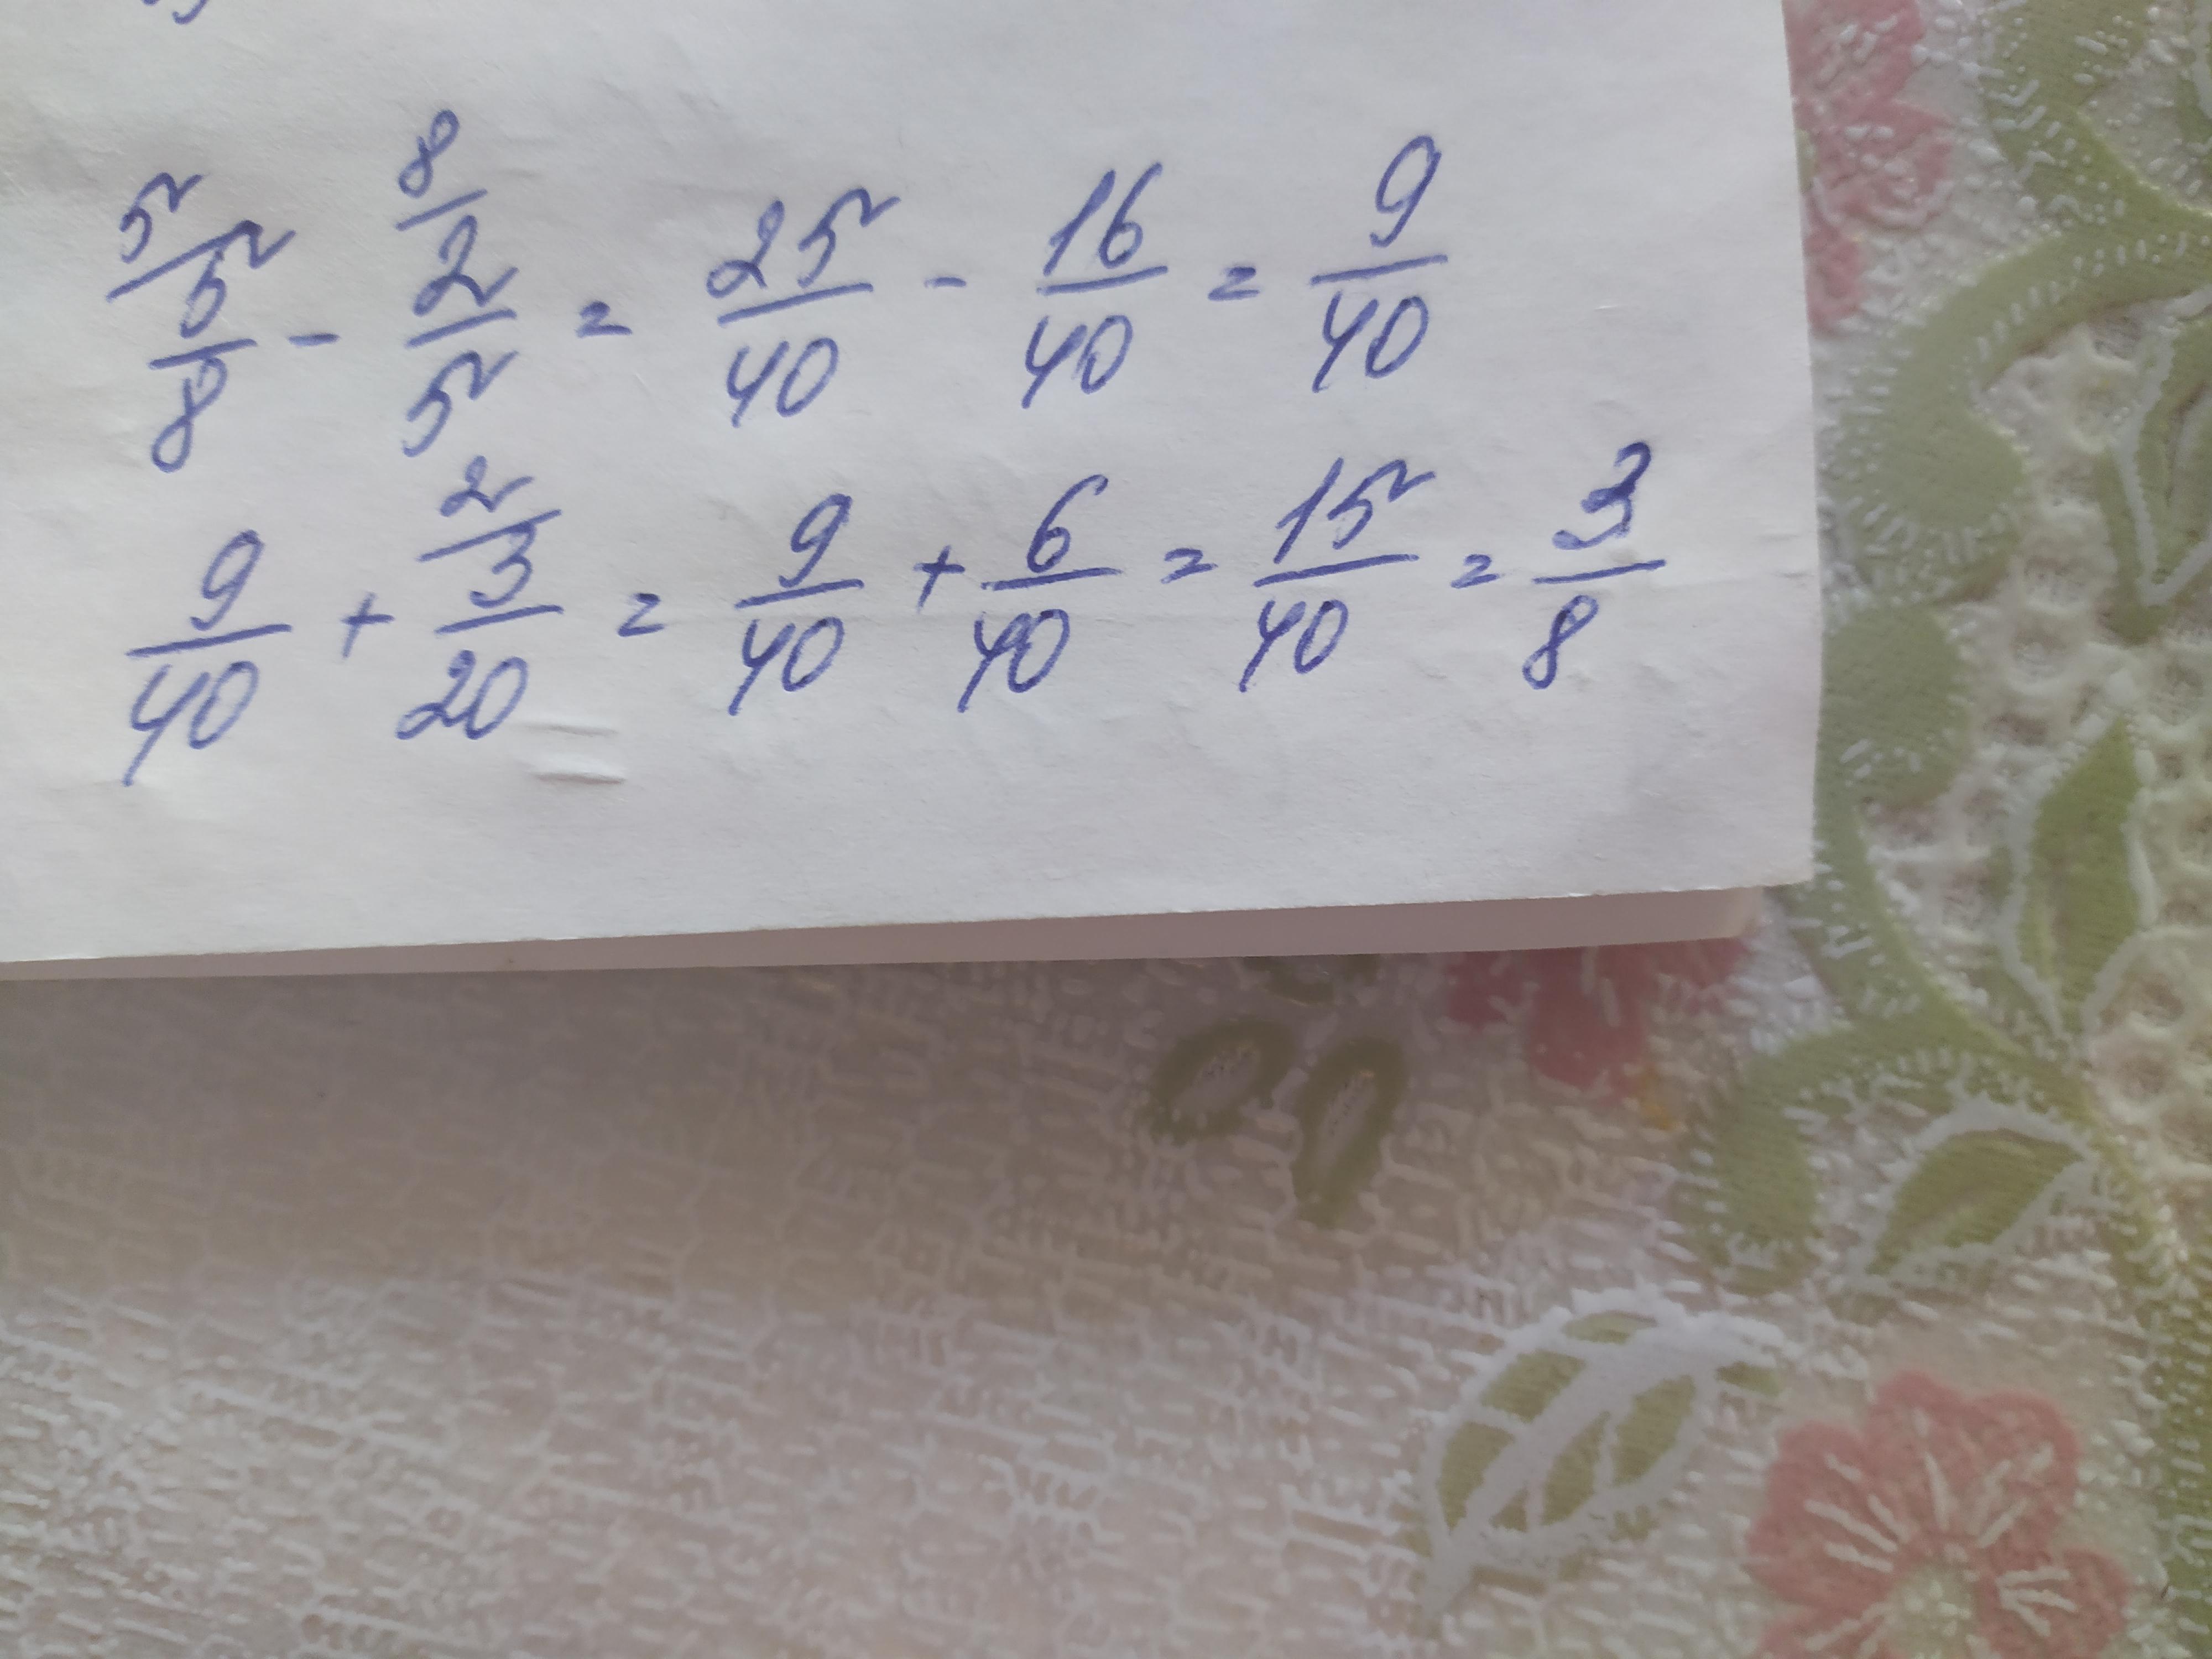 5/ 5/8 - 8/ 2/5 = 25/40 - 16/40 = 9/40
9/40 + 2/ 3/20 = 9/40 + 6/40 = 15/40 = 3/8